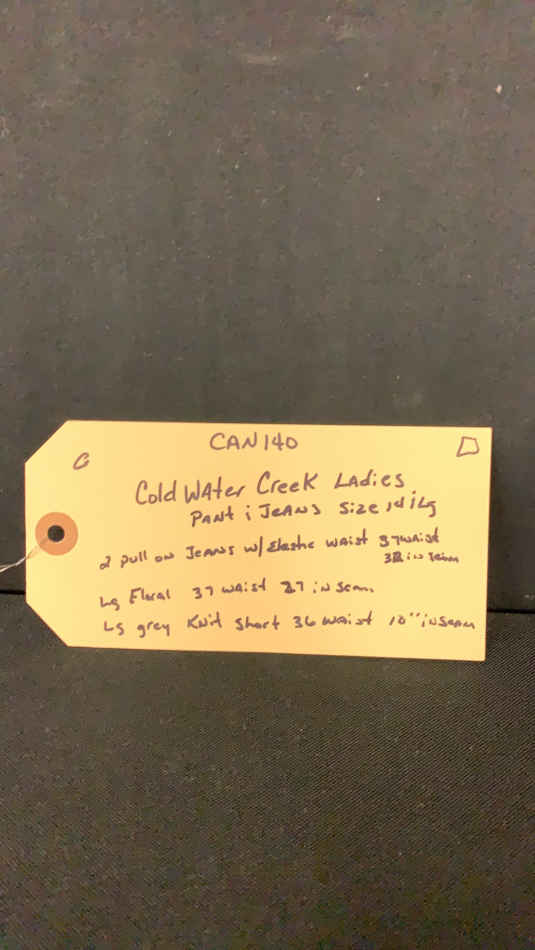 CAN140
C D
Cold Water Creek Ladies
Pant & Jeans Size 14 & Lg
2 pull on Jeans w/ Elastic waist 37 waist
32 inseam
Lg Floral 37 waist 27 inseam
Lg grey Knit Short 36 waist 10" inseam